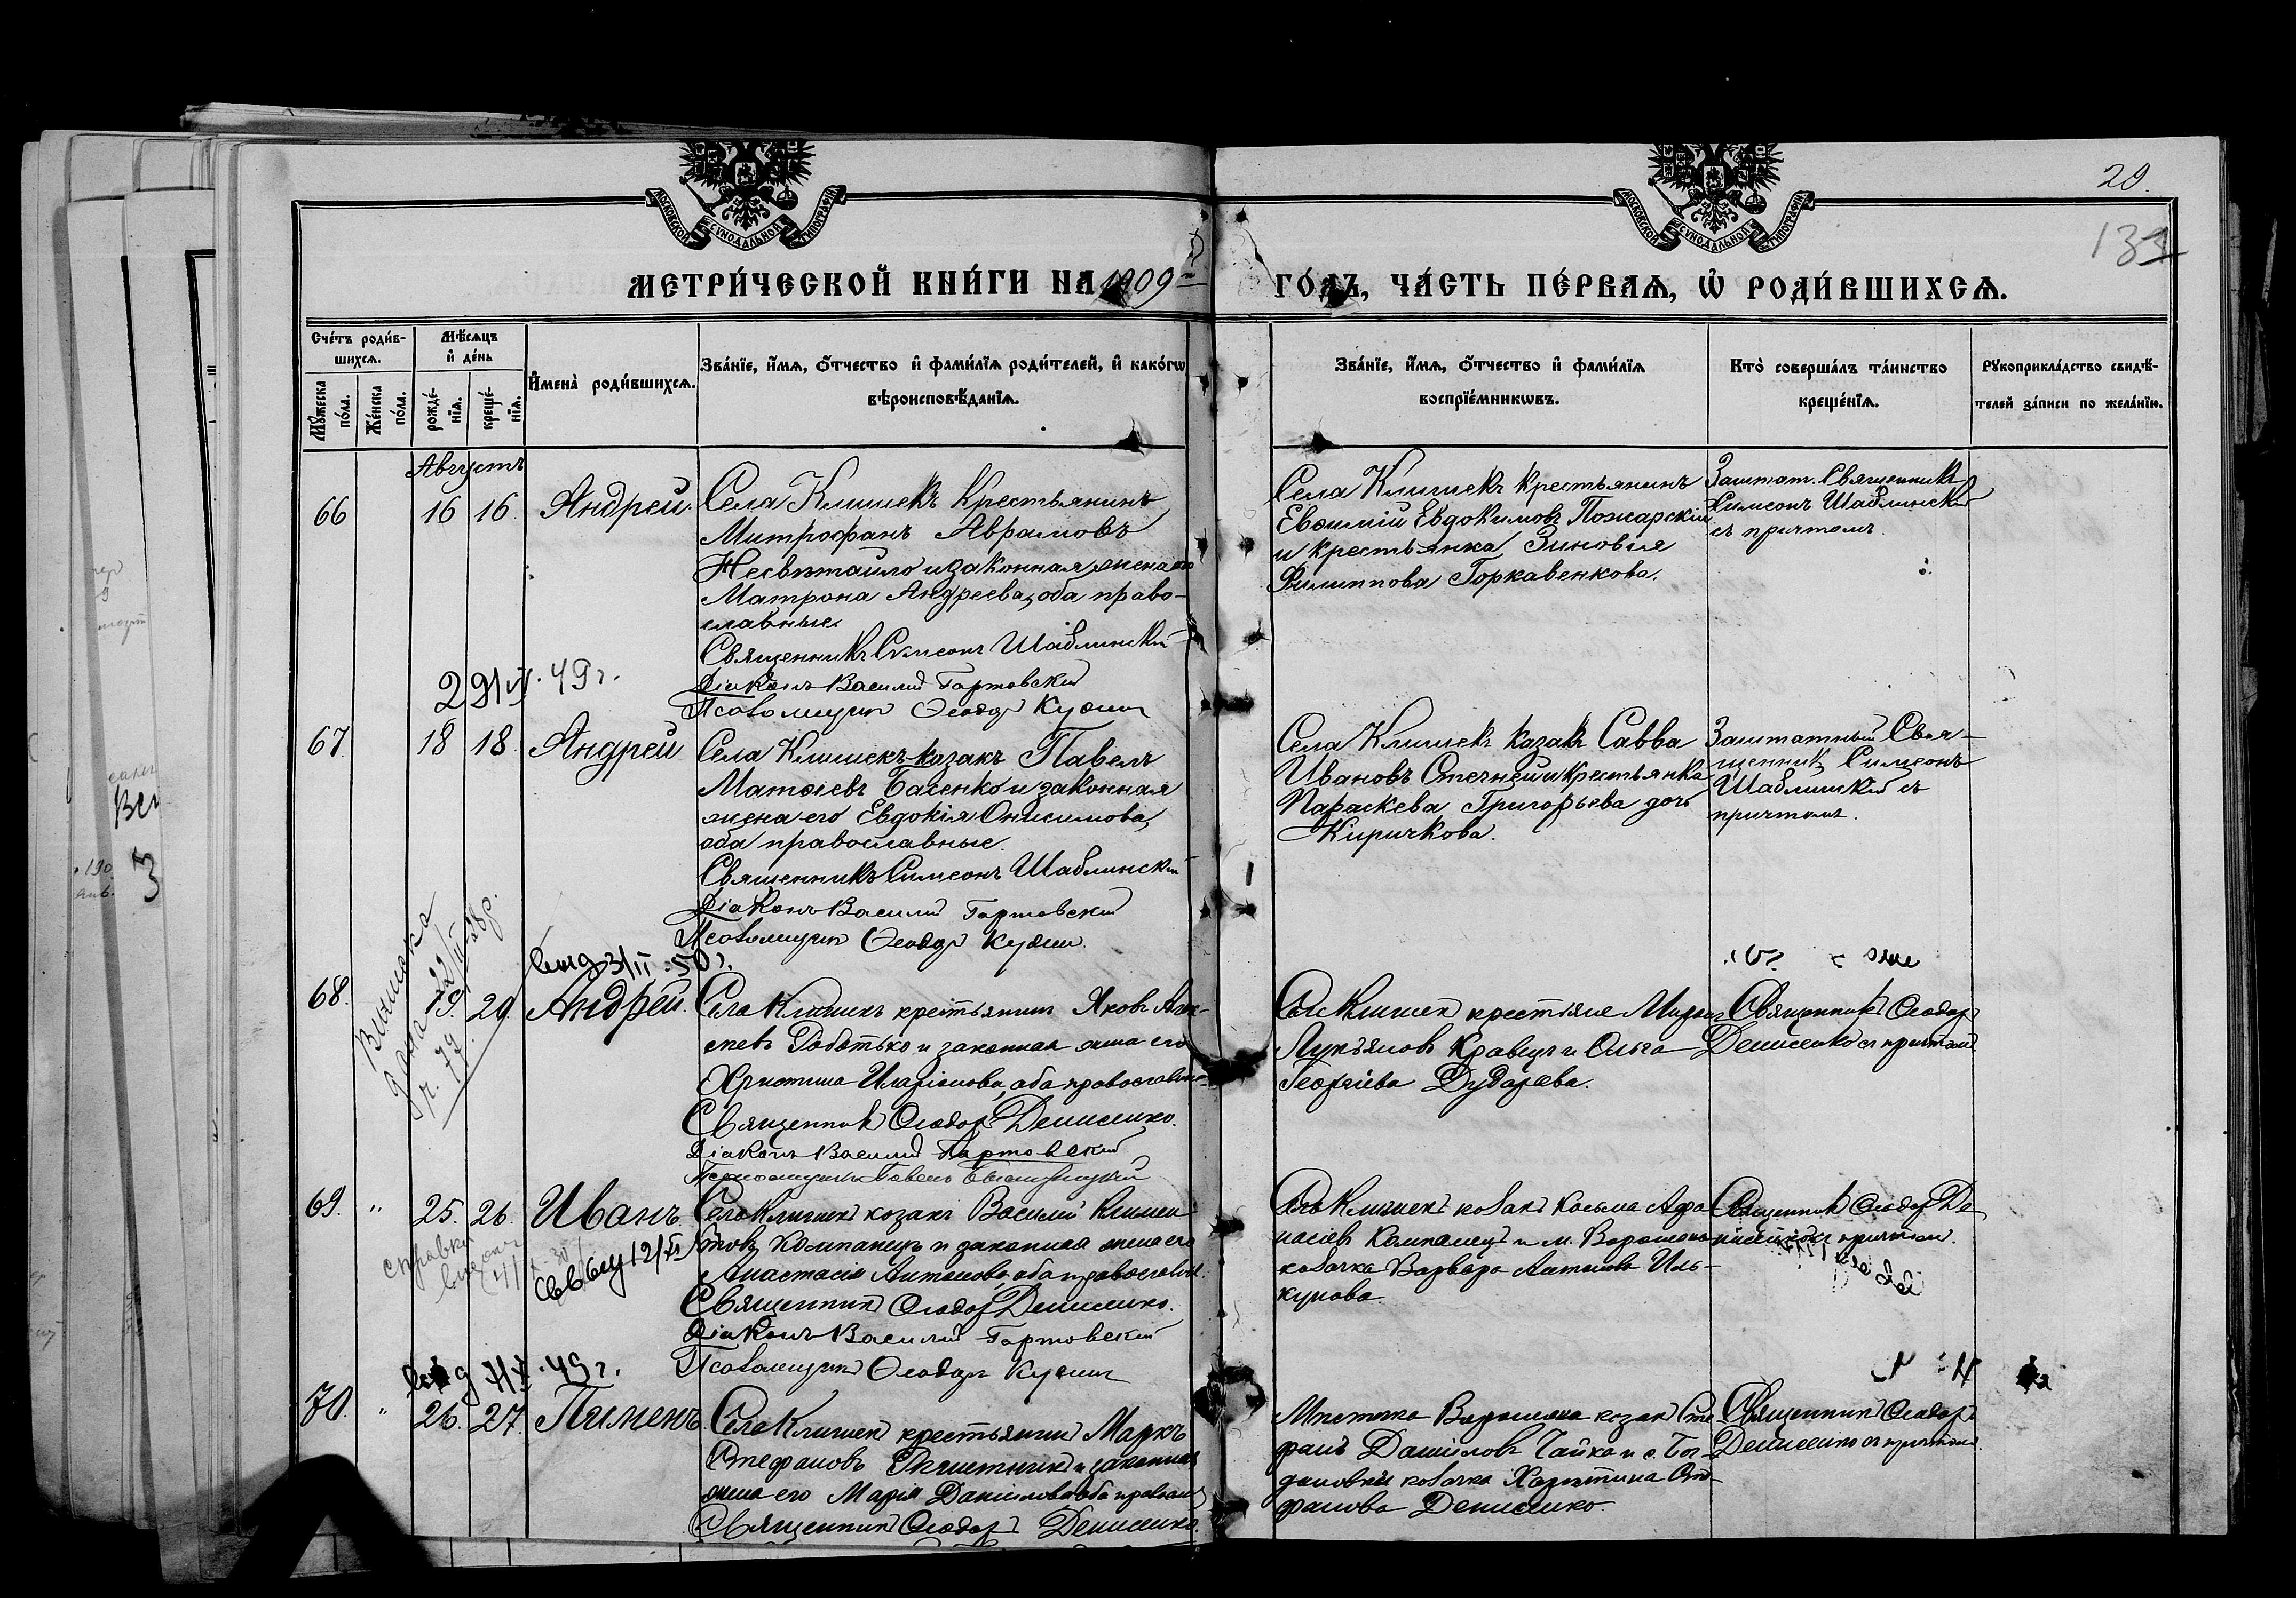 МОСКОВСКОЙ СУНОДАЛЬНОЙ ТИПОГРАФІИ
МОСКОВСКОЙ СУНОДАЛЬНОЙ ТИПОГРАФІИ
20.
133
МЕТРИ́ЧЕСКОЙ КНИ́ГИ НА 1909 ГО́ДЪ, ЧА́СТЬ ПЕ́РВАѦ, Ѿ РОДИ́ВШИХСѦ.
Сче́тъ роди́в-
шихсѧ.
Мꙋ́жеска по́ла.
Же́нска по́ла.
Мѣ́сѧцъ
и де́нь
рожде́-
нїѧ.
креще́-
нїѧ.
И҆мена̀ роди́вшихсѧ.
Зва́нїе, и҆́мѧ, ѻ҆́тчество и҆ фами́лїѧ роди́телей, и҆ како́гѡ
вѣроисповѣ́данїѧ.
Зва́нїе, и҆́мѧ, ѻ҆́тчество и҆ фами́лїѧ
воспрїе́мникѡвъ.
Кто̀ соверша́лъ та́инство
креще́нїѧ.
Рꙋкоприкла́дство свидѣ́-
телей за́писи по жела́нїю.
Августъ
66 16 16. Андрей.
Села Клишекъ крестьянинъ
Митрофанъ Аврамовъ
Несвѣтайло и законная жена его
Матрона Андреева, оба право-
славные.
Священникъ Симеонъ Шаблинскій
Діаконъ Василій Гартовскій
Псаломщикъ Ѳеодоръ
Села Клишекъ крестьянинъ
Евѳимій Евдокимовъ Пожарскій
и крестьянка Зиновія
Филиппова Горкавенкова.
Заштат. Священникъ
Симеонъ Шаблинскій
съ причтомъ.
49 г.
67 18 18. Андрей
Села Клишекъ казакъ Павелъ
Матѳіевъ Басенко и законная
жена его Евдокія Онисимова,
оба православные.
Священникъ Симеонъ Шаблинскій
Діаконъ Василій Гартовскій
Псаломщикъ Ѳеодоръ
Села Клишекъ казакъ Савва
Ивановъ Стечней и крестьянка
Параскева Григорьева дочь
Киричкова.
Заштатный Свя-
щенникъ Симеонъ
Шаблинскій съ
причтомъ.
Выписка
дана
3/II 50 г.
68. 19. 20. Андрей.
Села Клишекъ крестьянинъ Яковъ Алек-
сѣевъ Работько и законная жена его
Христина Иларіонова, оба православные
Священникъ Ѳеодоръ Денисенко.
Діаконъ Василій Гартовскій
Псаломщикъ Павелъ
Села Клишекъ крестьяне Миронъ
Лукьяновъ Кравецъ и Ольга
Георгіева Дударева.
Священникъ Ѳеодоръ
Денисенко съ причтомъ.
69. " 25. 26. Иванъ.
Села Клишекъ козакъ Василій Климен-
товъ Компанецъ и законная жена его
Анастасія Антонова, оба православные.
Священникъ Ѳеодоръ Денисенко.
Діаконъ Василій Гартовскій
Псаломщикъ Ѳеодоръ
Села Клишекъ козакъ Косьма Афа-
насіевъ Компанецъ и м. Воронежа
козачка Варвара Антонова Иль-
кунова.
Священникъ Ѳеодоръ Де-
нисенко съ причтомъ.
справка
49 г.
70. " 26. 27. Пименъ.
Села Клишекъ крестьянинъ Маркъ
Стефановъ и законная
жена его Марія Даніилова, оба православ.
Священникъ Ѳеодоръ Денисенко.
Мѣстечка Воронежа козакъ Сте-
фанъ Даніиловъ Чайка и с. Бог-
дановки козачка Харитина
Денисенко.
Священникъ Ѳеодоръ
Денисенко съ причтомъ.